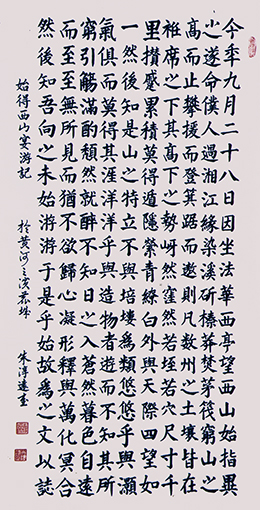 今秊九月二十八日因坐法華西亭望西山始指異
之遂命僕人過湘江緣染溪斫榛莽焚茅筏窮山之
高而止攀援而登箕踞而遨則凡數州之土壤皆在
衽席之下其高下之勢岈然窪然若垤若穴尺寸千
里攢蹙累積莫得遁隱縈青繚白外與天際四望如
一然後知是山之特立不與培塿為類悠悠乎與灝
氣俱而莫得其涯洋洋乎與造物者遊而不知其所
窮引觴滿酌頹然就醉不知日之入蒼然暮色自遠
而至至無所見而猶不欲歸心凝形釋與萬化冥合
然後知吾向之未始游游于是乎始故為之文以誌
始得西山宴游記 於黃河之濱 朱淳達書